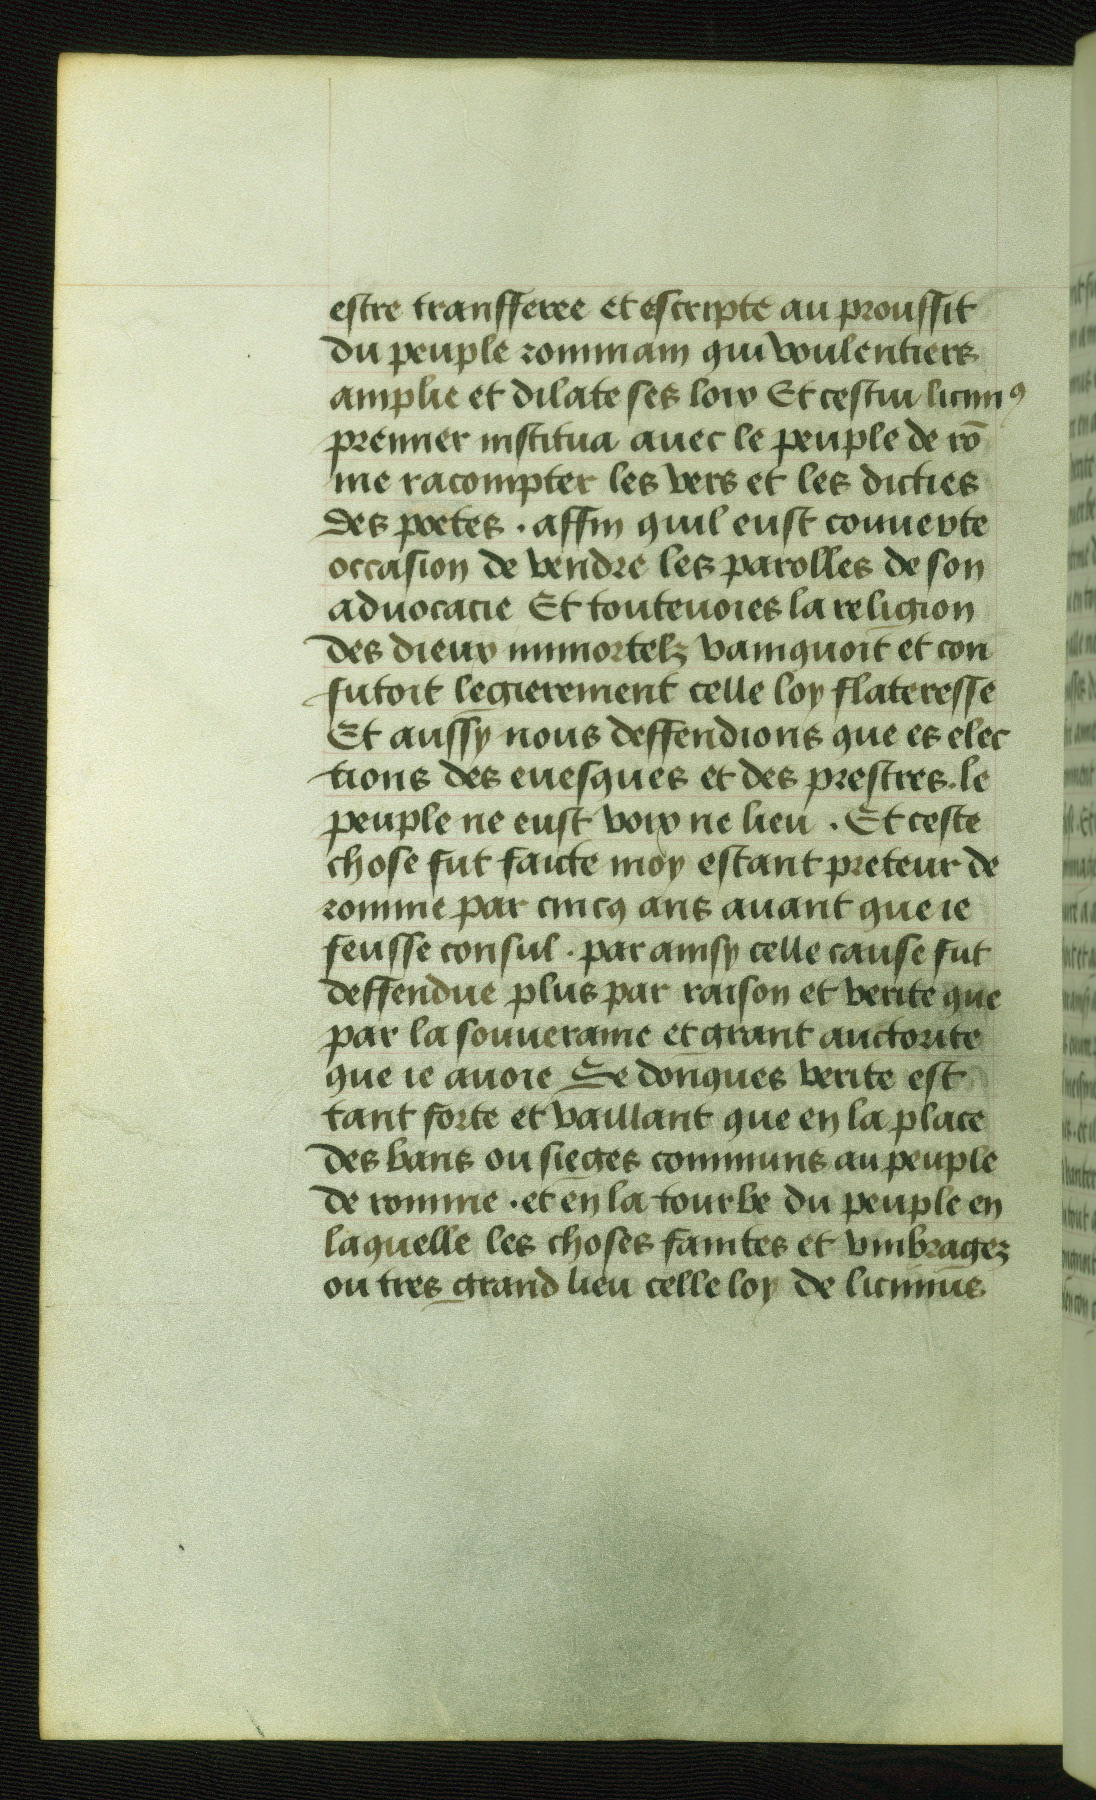 estre transferee et escripte au prouffit
du peuple rommain qui voulentiers
amplie et dilate ses loix Et cestui licini9
premier institua auec le peuple de rō
me racompter les vers et les dicties
des poetes . affin quil eust couuerte
occasion de vendre les parolles de son
aduocacie Et touteuoies la religion
des dieux immortelz vainquoit et con
futoit legierement celle loy flateresse
Et aussy nous deffendions que es elec
tions des euesques et des prestres . le
peuple ne eust voix ne lieu . Et ceste
chose fut faicte moy estant preteur de
romme par cincq ans auant que ie
feusse consul . par ainsy celle cause fut
deffendue plus par raison et verite que
par la souueraine et grant auctorite
que ie auoie Se donques verite est
tant forte et vaillant que en la place
des bans ou sieges communs au peuple
de romme . et en la tourbe du peuple en
laquelle les choses faintes et vmbragez
ou tres grand lieu celle loy de licinius